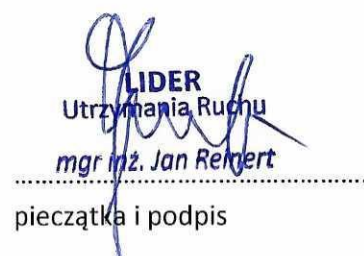 LIDER
Utrzymania Ruchu
mgr inż. Jan Reinert
pieczątka i podpis